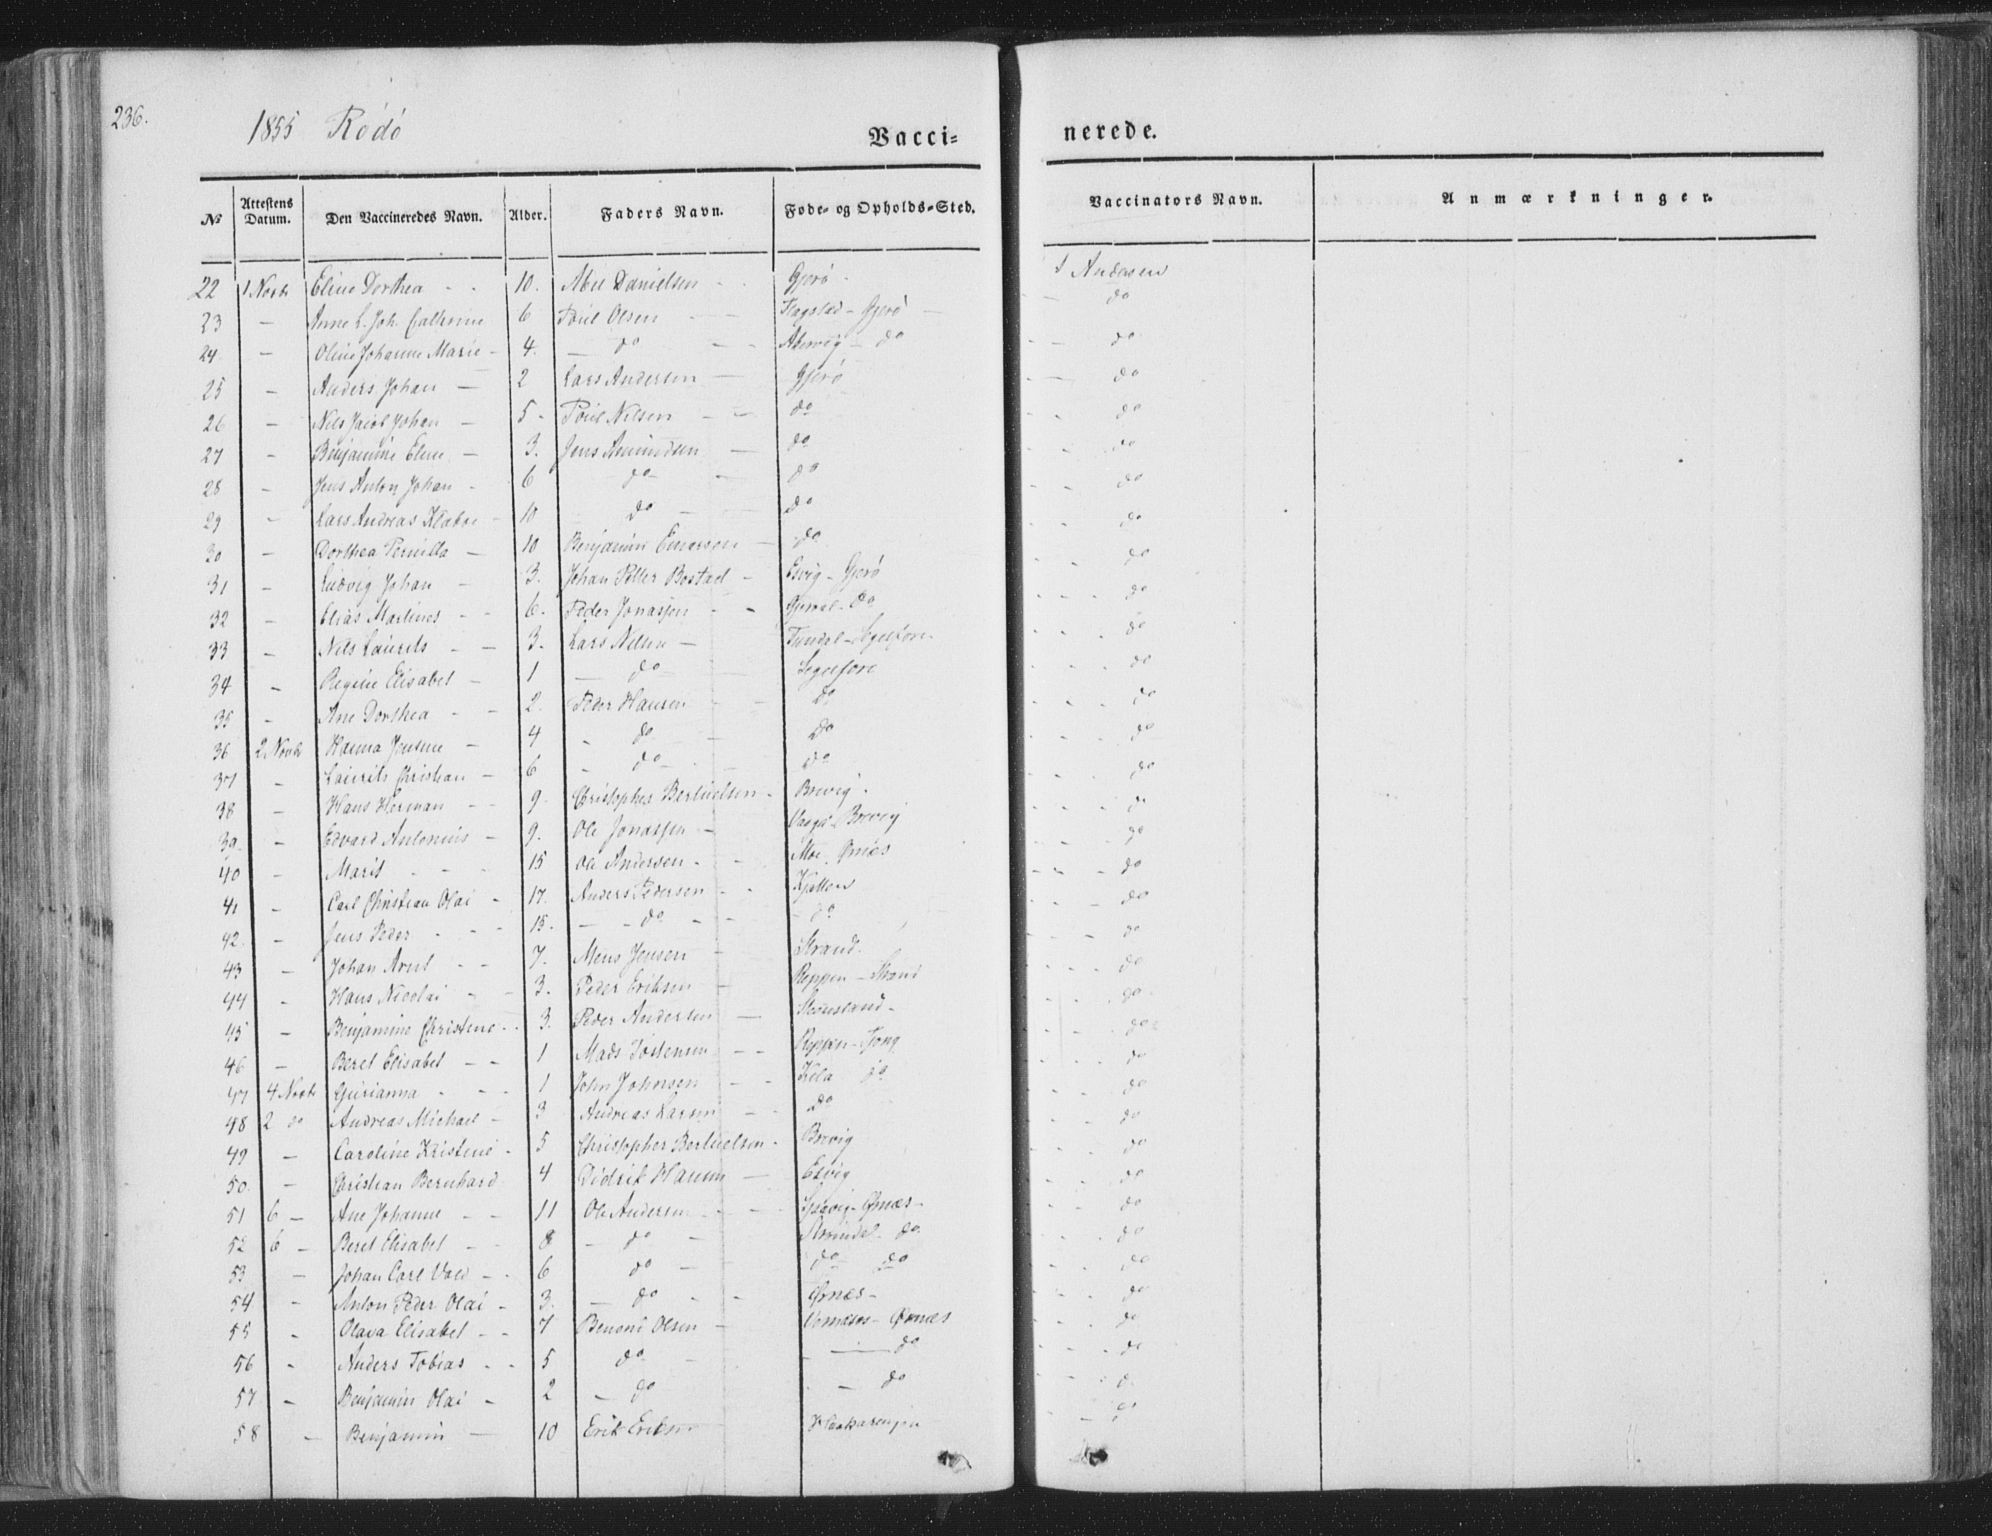 236.
1855 Rödö
Vacci=
nerede.
No Attestens Datum. Den Vaccineredes Navn. Alder. Faders Navn. Føde- og Opholds-Sted. Vaccinators Navn. Anmærkninger.
22 1 Novbr Eline Dorthea - - 10. Abel Danielsen - Gjerö - Andersen
23 — Anne L. Joh. Cathrine 6 Poul Olsen — Flagstad - Gjerö — do
24 — Oline Johanne Marie - 4. — do - - do - - do
25 — Anders Johan — 2 Lars Andersen — Gjerö - — do
26 — Nils Jacob Johan — 5 - Poul Nilsen - — do - - do
27 - Benjamine Eline — 3. Jens Amundsen — do - - do
28 - Jens Anton Johan - 6 do — do - - do
29 - Lars Andreas - 10 - do — do - - do
30 — Dorthea Pernilla — 10 Benjamin — do - - do
31 — Ludvig Johan - 3. Johan Petter Bostad - Esvig - Gjerö - - do
32 - Elias Martines - - 6. Peder Jonassen - - do - - do
33 - Nils Laurits - - 3. Lars Nilsen — - - do
34 - Regine Elisabet - 1 — do - - - do
35 - Ane Dorthea - - 2. Peder Hansen - - do - - do
36 2 Novbr Hanna Jensine - 4 - do - do - - do
37 - Laurits Christian - 6 - do - - do - - do
38 - Hans Herman - - 9. Christopher Bertelsen - Brevig - - - do
39. - Edvard Antonius - 9. Ole Jonassen - Brevig - - do
40 - Marit - - - 15 Ole Andersen - - Moe Ørnes - - do
41 - Carl Christian Olai - 17. Anders Pedersen - - - - do
42. - Jens Peder - - - 15. — - do - - - do - - do
43 — Johan Arnt - - 7. Mons Jensen - Strand. - - do
44 - Hans Nicolai - - 3. Peder Eriksen - Reppen - Strand - - do
45 - Benjamine Christene - - 3. Peder Andersen — - - do
46 — Beret Elisabet - - 1 Mads - - Reppen - Tjong - - do
47 4 Novbr Gurianna - - - 1 John Johnsen - - Kila do - - do
48 2 do Andreas Michael - 3 Andreas Larsen - - do - - do
49 — Caroline Kristine - 5 Christopher Bertelsen - Brevig - - do
50. - Christian Bernhard 4 Didrik Hansen — Esvig - - do
51 6 — Ane Johanne - - 11 Ole Andersen - - - Ørnæs - - - do
52 6 - Beret Elisabet - - 8 - do - do - - do
53 — Johan Carl - - 6 do - do do - - do
54 - Anton Peder Olai - 3. — do - - Ørnæs - - - do
55 - Olava Elisabet - - 7 Benoni Olsen - Ørnæs - - do
56 - Anders Tobias - - 5 do - — do - - do
57 - Benjamin Olai - 2 — do - do - - d.
58 — Benjamin — 10 Erik Eriksen